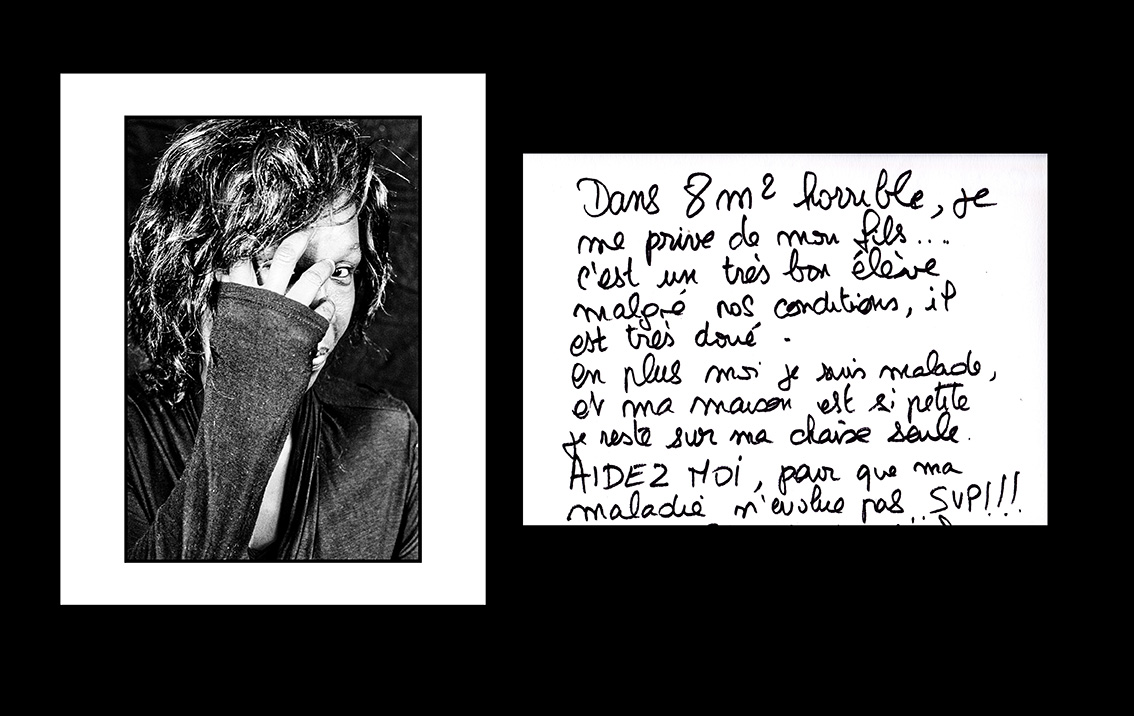 Dans 8 m² horrible, je
me prive de mon fils...
c'est un très bon élève
malgré nos conditions, il
est très doué.
en plus moi je suis malade,
et ma maison est si petite
je reste sur ma chaise seule.
AIDEZ MOI, pour que ma
maladie n'evolue pas SVP!!!